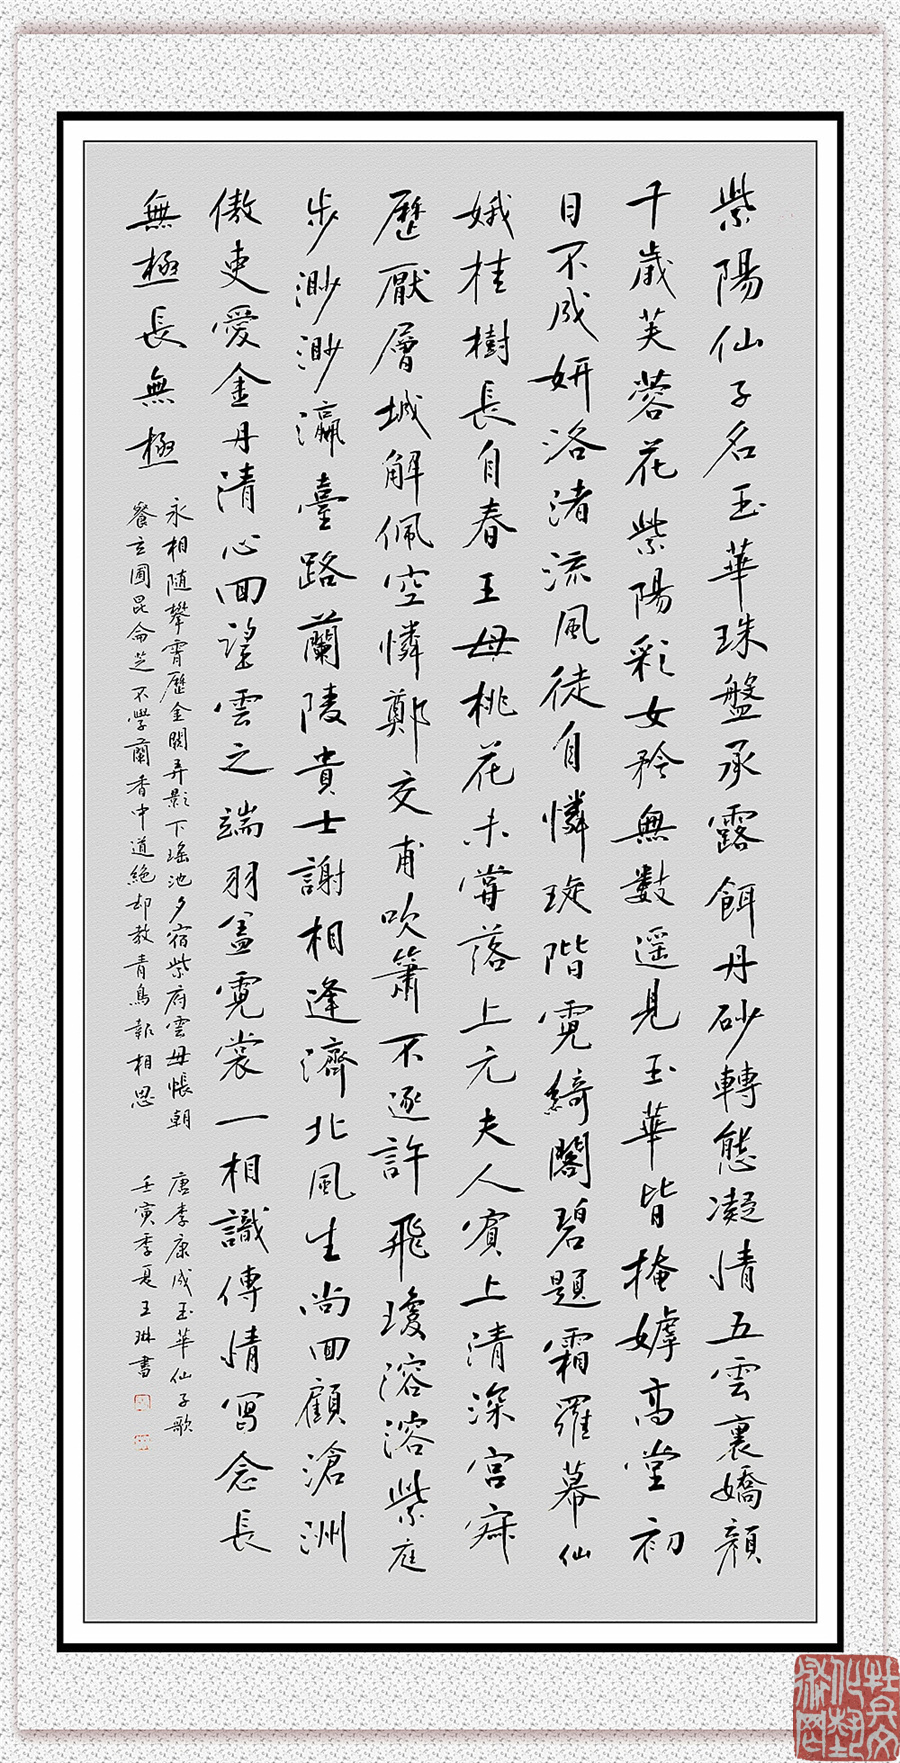 紫陽仙子名玉華珠盤承露餌丹砂轉態凝情五雲裏嬌顏
千歲芙蓉花紫陽彩女矜無數遥見玉華皆掩嫭高堂初
日不成妍洛渚流風徒自憐琁階霓綺閣碧題霜羅幕仙
娥桂樹長自春王母桃花未嘗落上元夫人賓上清深宮寂
歷厭層城解佩空憐鄭交甫吹簫不逐許飛瓊溶溶紫庭
步渺渺瀛臺路蘭陵貴士謝相逢濟北風生尚回顧滄洲
傲吏愛金丹清心回望雲之端羽蓋霓裳一相識傳情寫念長
無極長無極
永相随攀霄歷金闕弄影下瑤池夕宿紫府雲母帳朝
餐玄圃昆侖芝不學蘭香中道絕却教青鳥報相思
唐李康成玉華仙子歌
壬寅季夏王琳書